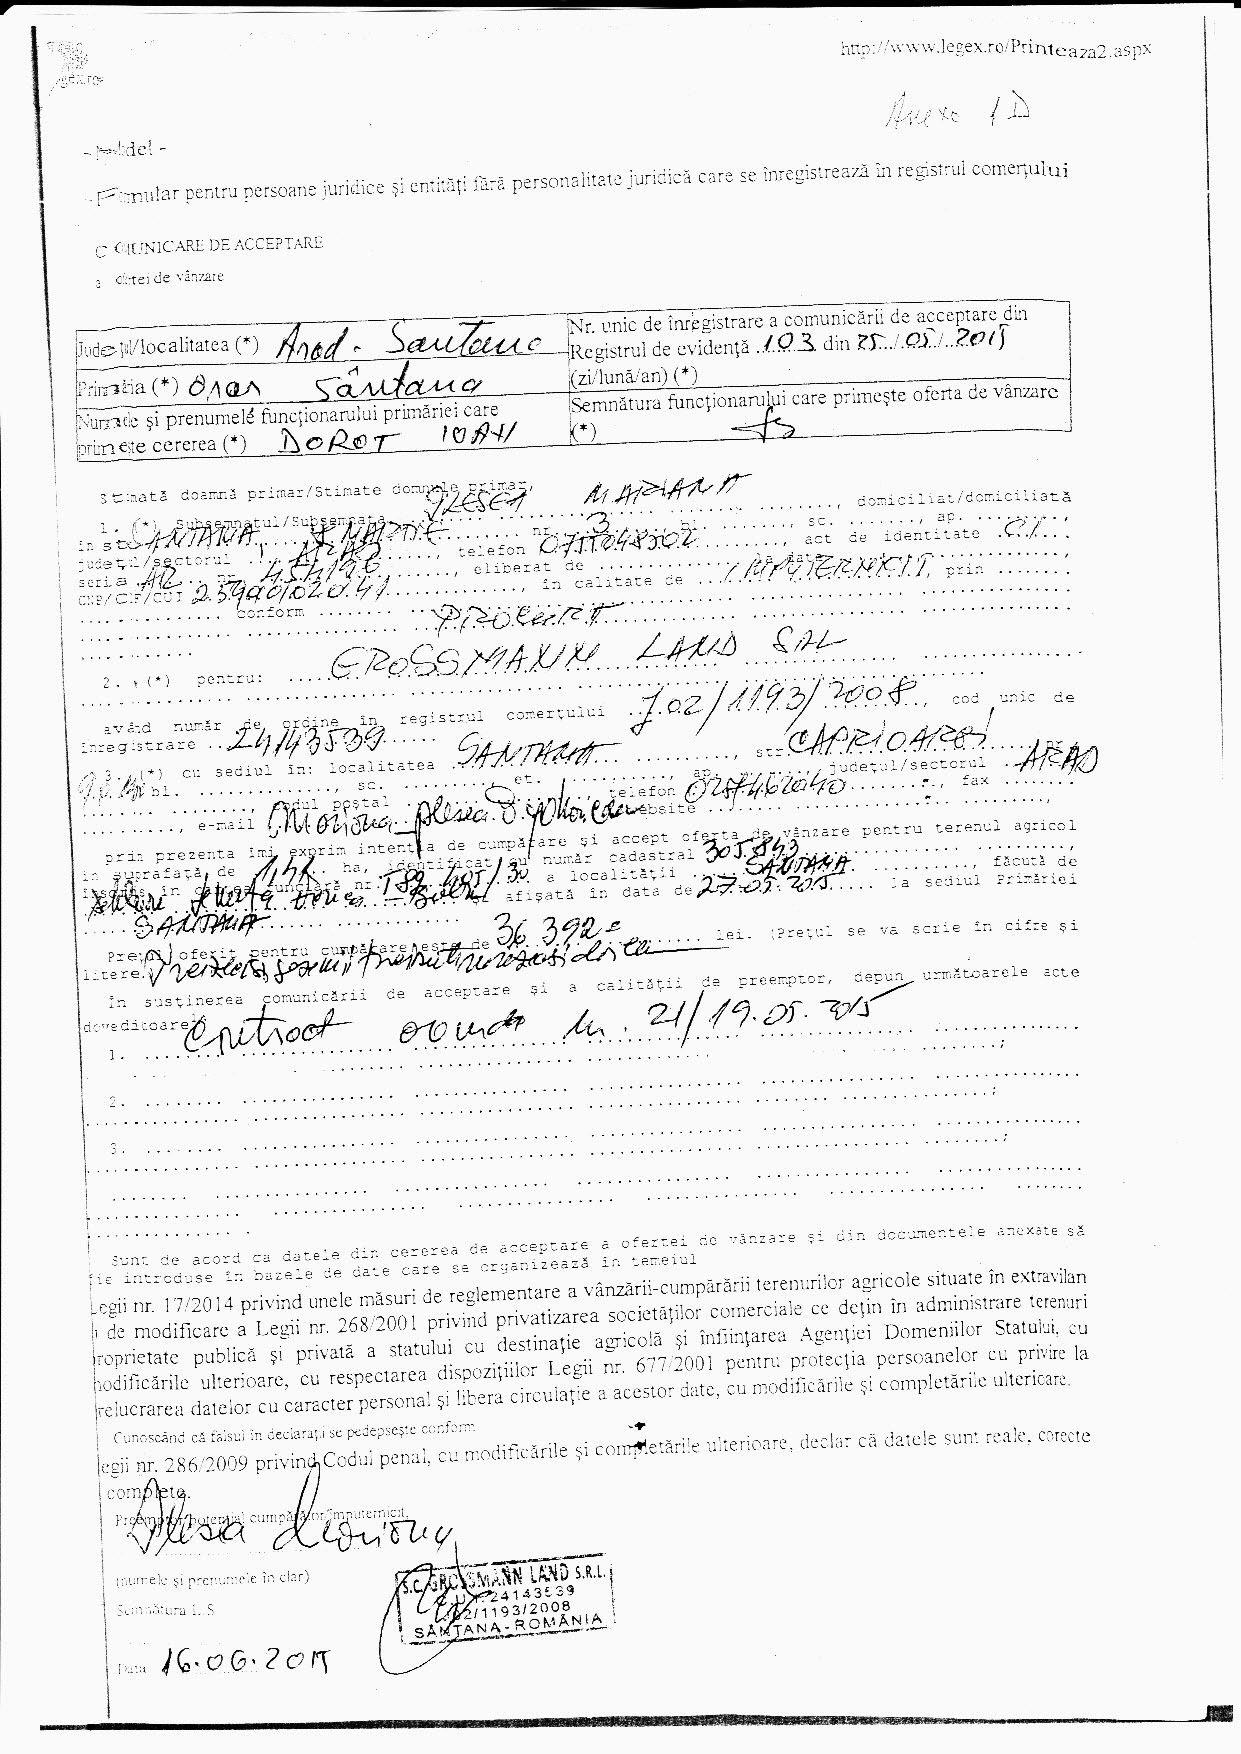 http://www.legex.ro/Printeaza2.aspx
Anexa 1D
- Model -
- Formular pentru persoane juridice şi entităţi fără personalitate juridică care se înregistrează în registrul comerţului
COMUNICARE DE ACCEPTARE
a ofertei de vânzare
Judeţul/localitatea (*) Arad - Santana
Nr. unic de înregistrare a comunicării de acceptare din
Registrul de evidenţă 103 din 25/05/2015
(zi/lună/an) (*)
Primăria (*) Oraş Sântana
Numele şi prenumele funcţionarului primăriei care
primeşte cererea (*) DOROT IOAN
Semnătura funcţionarului care primeşte oferta de vânzare
(*)
Stimată doamnă primar/Stimate domnule primar,
1. (*) Subsemnatul/Subsemnata MARIANA ......, domiciliat/domiciliată
în SANTANA, nr. 3 bl. ......, sc. ......, ap. ......,
judeţul/sectorul ARAD ......, telefon ......, act de identitate C.I.
seria AR nr. ......, eliberat de ...... la data
CNP/CIF/CUI ......, în calitate de IMPUTERNICIT, prin ......
...... conform ......
2. (*) pentru: GROSSMANN LAND SRL
având număr de ordine în registrul comerţului J02/1193/2008, cod unic de
înregistrare 24143539
3. (*) cu sediul în: localitatea SANTANA ......, str. ...... nr.
bl. ......, sc. ......, et. ......, ap. ......, judeţul/sectorul ARAD
......, codul poştal ......, telefon ......, fax ......
......, e-mail ...... website ......,
prin prezenta îmi exprim intenţia de cumpărare şi accept oferta de vânzare pentru terenul agricol
în suprafaţă de ...... ha, identificat cu număr cadastral 305843 ......,
înscris în cartea funciară nr. ...... a localităţii SANTANA ......, făcută de
...... afişată în data de 27.05.2015 la sediul Primăriei
SANTANA
Preţul oferit pentru cumpărare este de 36.392 lei. (Preţul se va scrie în cifre şi
litere.)
În susţinerea comunicării de acceptare şi a calităţii de preemptor, depun următoarele acte
doveditoare:
1. Contract arenda nr. 21/19.05.2015
2. ......;
3. ......;
Sunt de acord ca datele din cererea de acceptare a ofertei de vânzare şi din documentele anexate să
fie introduse în bazele de date care se organizează în temeiul
Legii nr. 17/2014 privind unele măsuri de reglementare a vânzării-cumpărării terenurilor agricole situate în extravilan
şi de modificare a Legii nr. 268/2001 privind privatizarea societăţilor comerciale ce deţin în administrare terenuri
proprietate publică şi privată a statului cu destinaţie agricolă şi înfiinţarea Agenţiei Domeniilor Statului, cu
modificările ulterioare, cu respectarea dispoziţiilor Legii nr. 677/2001 pentru protecţia persoanelor cu privire la
prelucrarea datelor cu caracter personal şi libera circulaţie a acestor date, cu modificările şi completările ulterioare.
Cunoscând că falsul în declaraţii se pedepseşte conform
Legii nr. 286/2009 privind Codul penal, cu modificările şi completările ulterioare, declar că datele sunt reale, corecte
complete.
Preemptor/potenţial cumpărător/împuternicit,
Plesea Mariana
(numele şi prenumele în clar)
Semnătura L.S.
S.C. GROSSMANN LAND S.R.L.
24143539
J02/1193/2008
SÂNTANA-ROMÂNIA
Data 16.06.2015